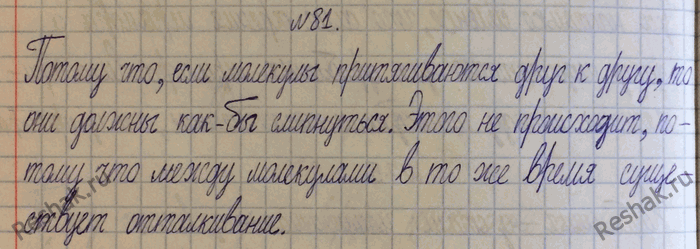 №81.
Потому что, если молекулы притягиваются друг к другу, то
они должны как-бы слипнуться. Этого не происходит, по-
тому что между молекулами в то же время суще
ствует отталкивание.
Reshak.ru
Reshak.ru